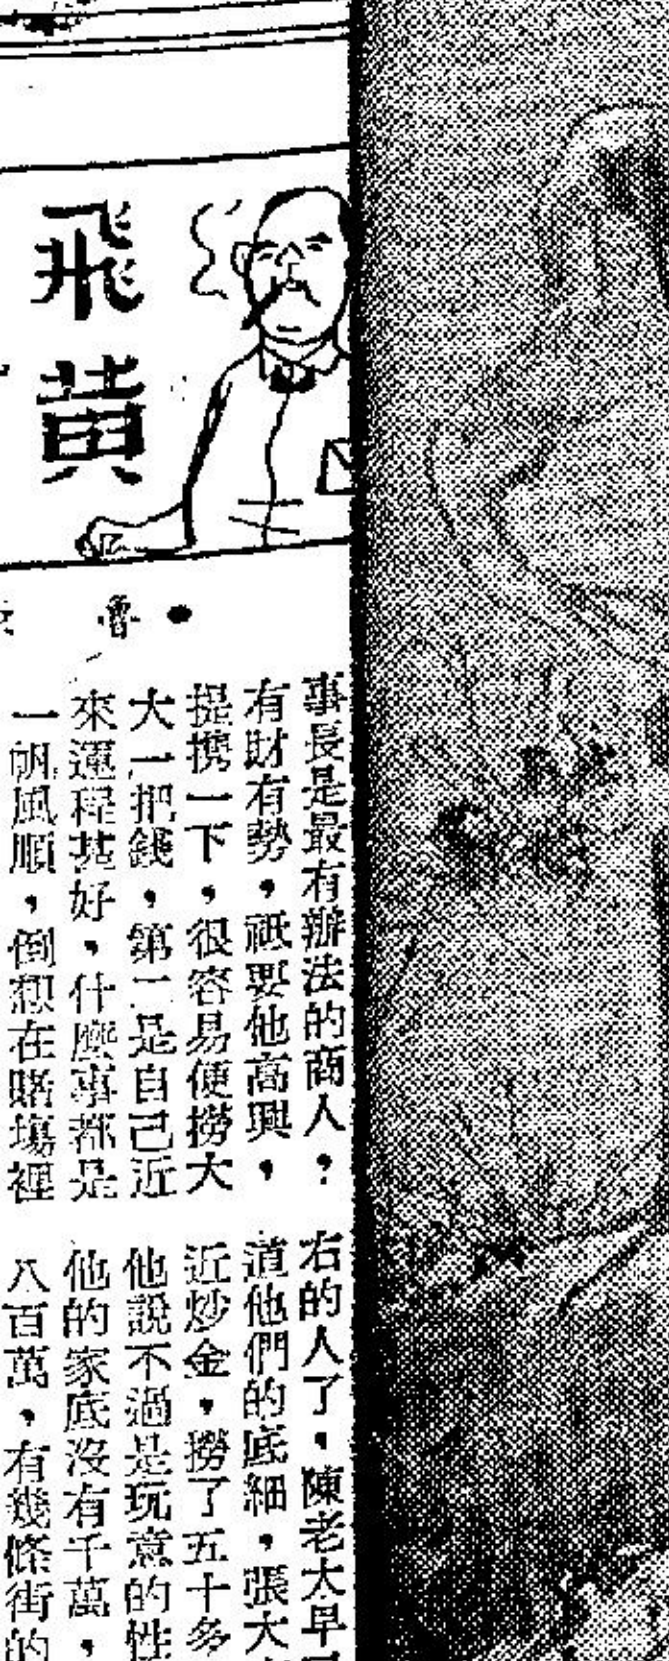 飛黃
魯
事長是最有辦法的商人，
有財有勢，祗要他高興，
提携一下，很容易便撈大
大一把錢，第二是自己近
來運程甚好，什麼事都是
一帆風順，倒想在賭塲裡
右的人了，陳老大早
道他們的底細，張大
近炒金，撈了五十多
他說不過是玩意的性
他的家底沒有千萬，
八百萬，有幾條街的